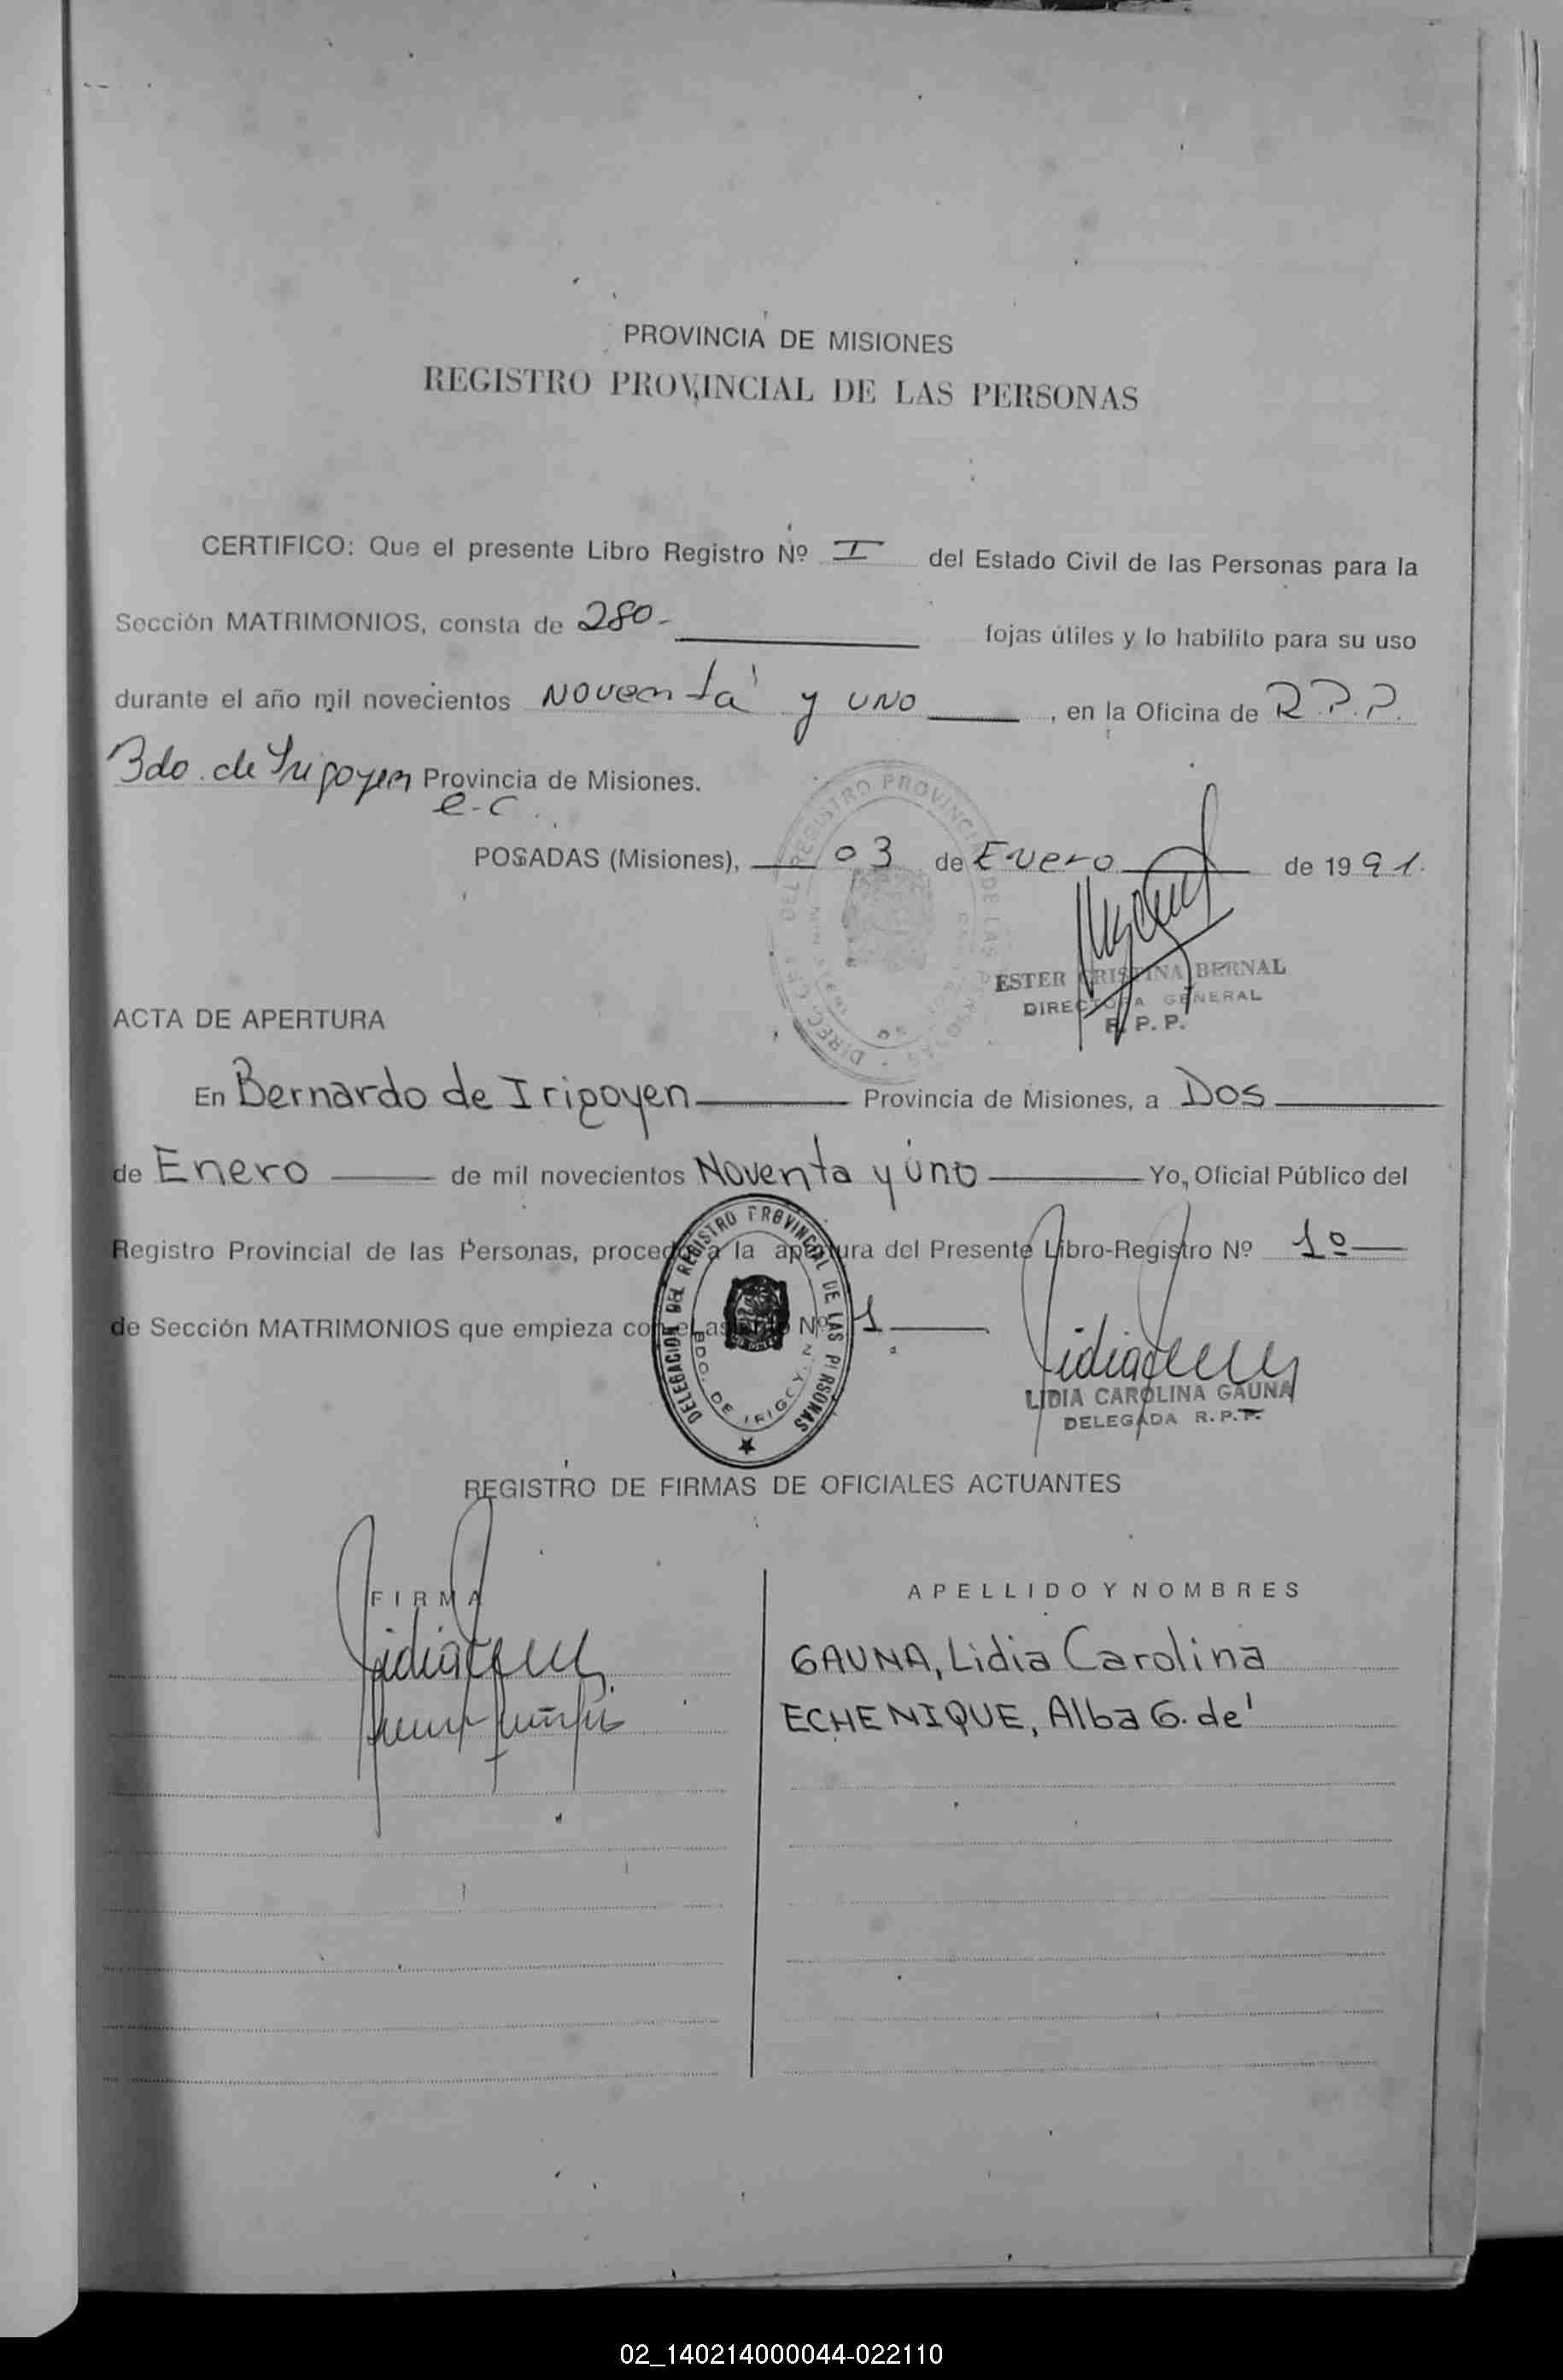 PROVINCIA DE MISIONES
REGISTRO PROVINCIAL DE LAS PERSONAS
CERTIFICO: Que el presente Libro Registro Nº I del Estado Civil de las Personas para la
Sección MATRIMONIOS, consta de 280.- fojas útiles y lo habilito para su uso
durante el año mil novecientos Noventa y UNO, en la Oficina de R.P.P.
Bdo. de Irigoyen Provincia de Misiones.
e-c.
POSADAS (Misiones), 03 de Enero de 1991.
ESTER CRISTINA BERNAL
DIRECTORA GENERAL
R. P. P.
ACTA DE APERTURA
En Bernardo de Irigoyen Provincia de Misiones, a Dos
de Enero de mil novecientos Noventa y uno Yo, Oficial Público del
Registro Provincial de las Personas, procedo a la apertura del Presente Libro-Registro Nº 1º
de Sección MATRIMONIOS que empieza con el asiento Nº 1.
DELEGACION DEL REGISTRO PROVINCIAL DE LAS PERSONAS
BDO. DE IRIGOYEN
LIDIA CAROLINA GAUNA
DELEGADA R.P.P.
REGISTRO DE FIRMAS DE OFICIALES ACTUANTES
FIRMA
APELLIDO Y NOMBRES
GAUNA, Lidia Carolina
ECHENIQUE, Alba G. de
02_140214000044-022110